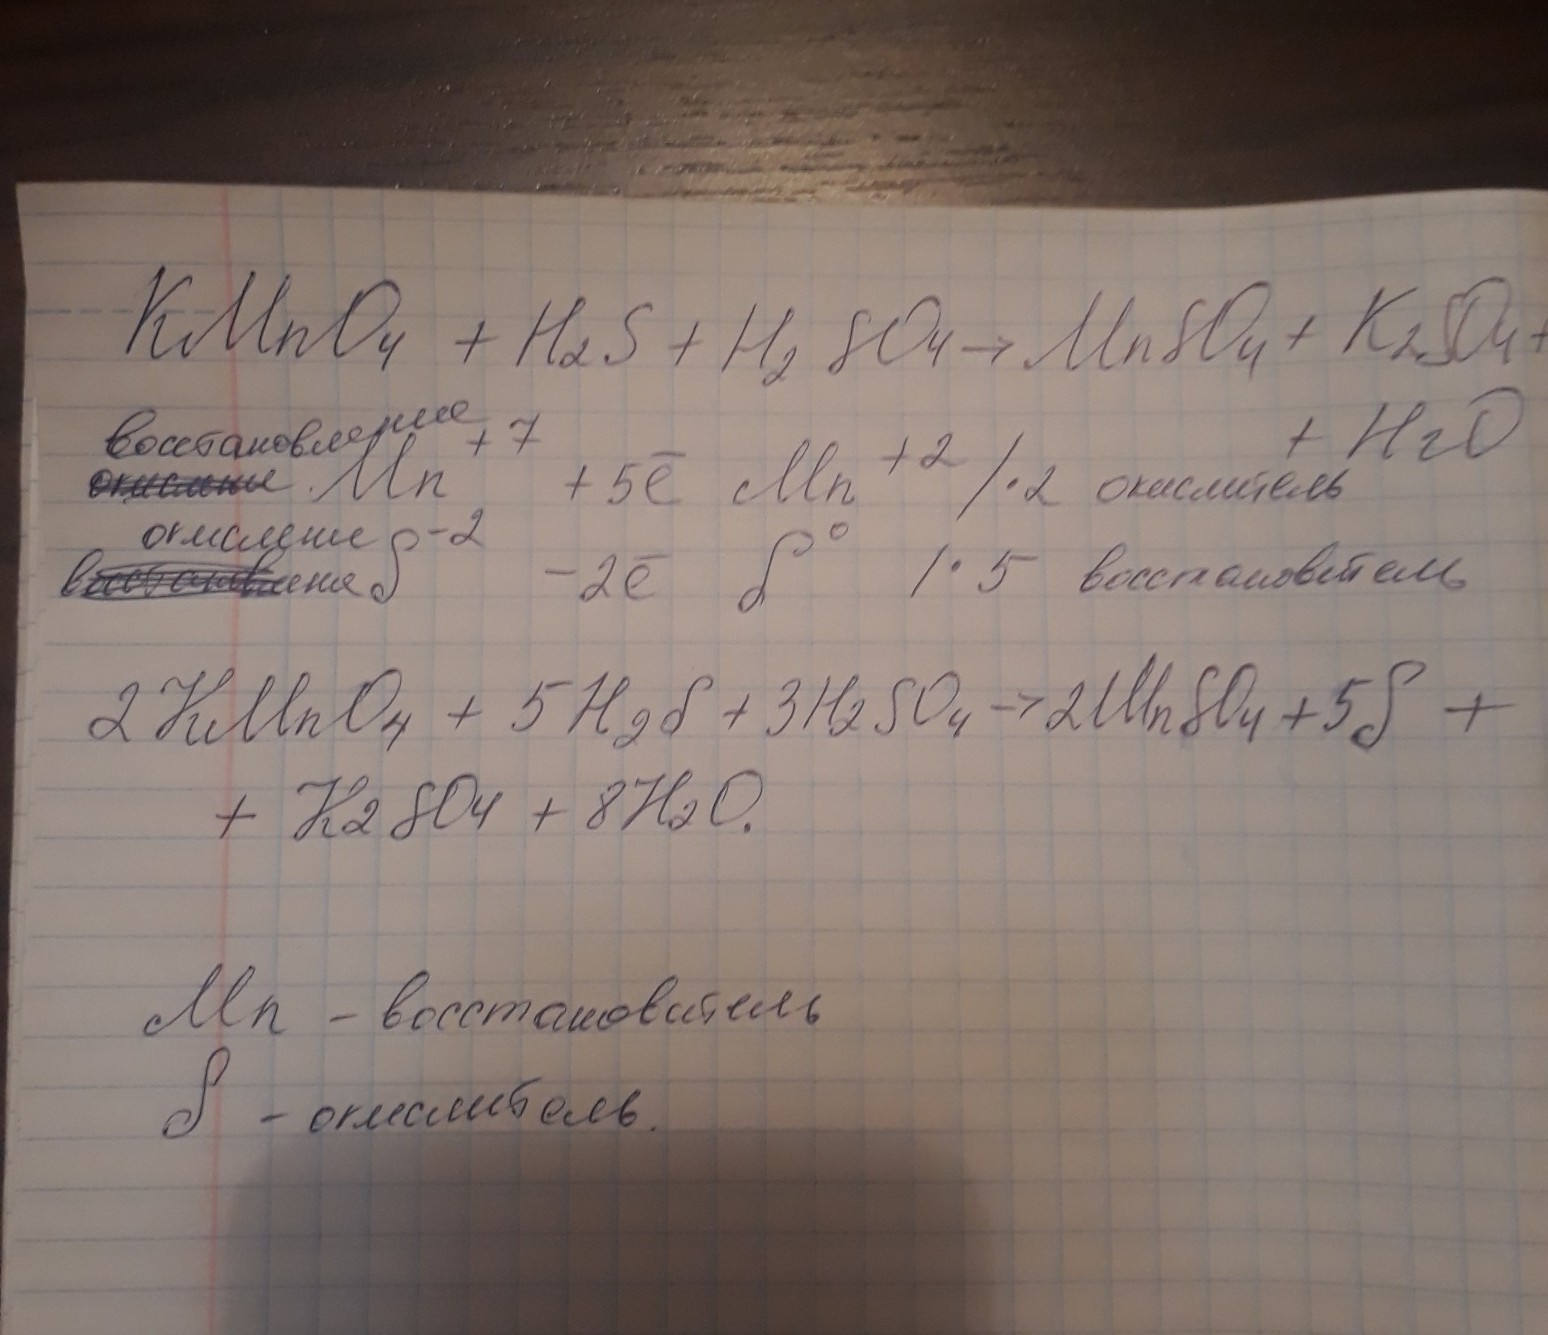 KMnO4 + H2S + H2SO4 → MnSO4 + K2SO4 +
+ H2O
восстановление
окисление Mn+7 +5ē Mn+2 /·2 окислитель
окисление
восстановление S-2 -2ē S0 /·5 восстановитель
2KMnO4 + 5H2S + 3H2SO4 → 2MnSO4 + 5S +
+ K2SO4 + 8H2O.
Mn - восстановитель
S - окислитель.